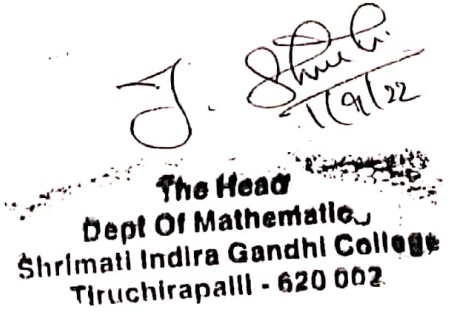 J.
1/9/22
The Head
Dept Of Mathematic
Shrimati Indira Gandhi College
Tiruchirapalli - 620 002